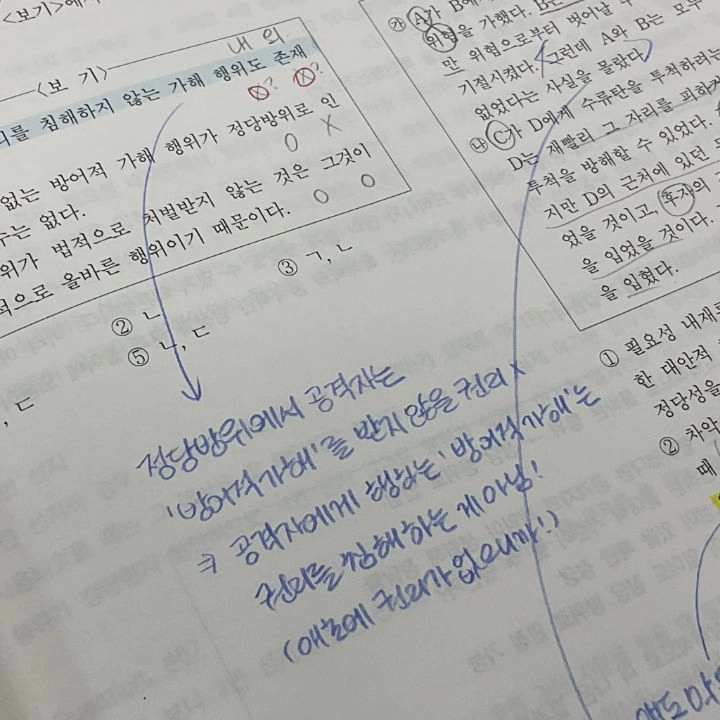 <보기>에
<보 기>
내 의
리를 침해하지 않는 가해 행위도 존재
없는 방어적 가해 행위가 정당방위로 인
수는 없다.
위가 법적으로 처벌받지 않는 것은 그것이
적으로 올바른 행위이기 때문이다.
② ㄴ
③ ㄱ, ㄴ
, ㄷ
⑤ ㄴ, ㄷ
정당방위에서 공격자는
'방어적 가해'를 받지 않을 권리 x
=> 공격자에게 행하는 '방어적 가해'는
권리를 침해하는 게 아님!
(애초에 권리가 없으니까!)
㉮ A가 B에
위협을 가했다. B는
만 위협으로부터 벗어날 수
기절시켰다. 그런데 A와 B는 모두
없었다는 사실을 몰랐다.
㉯ C가 D에게 수류탄을 투척하려는
D는 재빨리 그 자리를 피하거
투척을 방해할 수 있었다.
지만 D의 근처에 있던
었을 것이고, 후자의
을 입었을 것이다.
을 입혔다.
① 필요성 내재
한 대안적
정당성을
② 차악
때